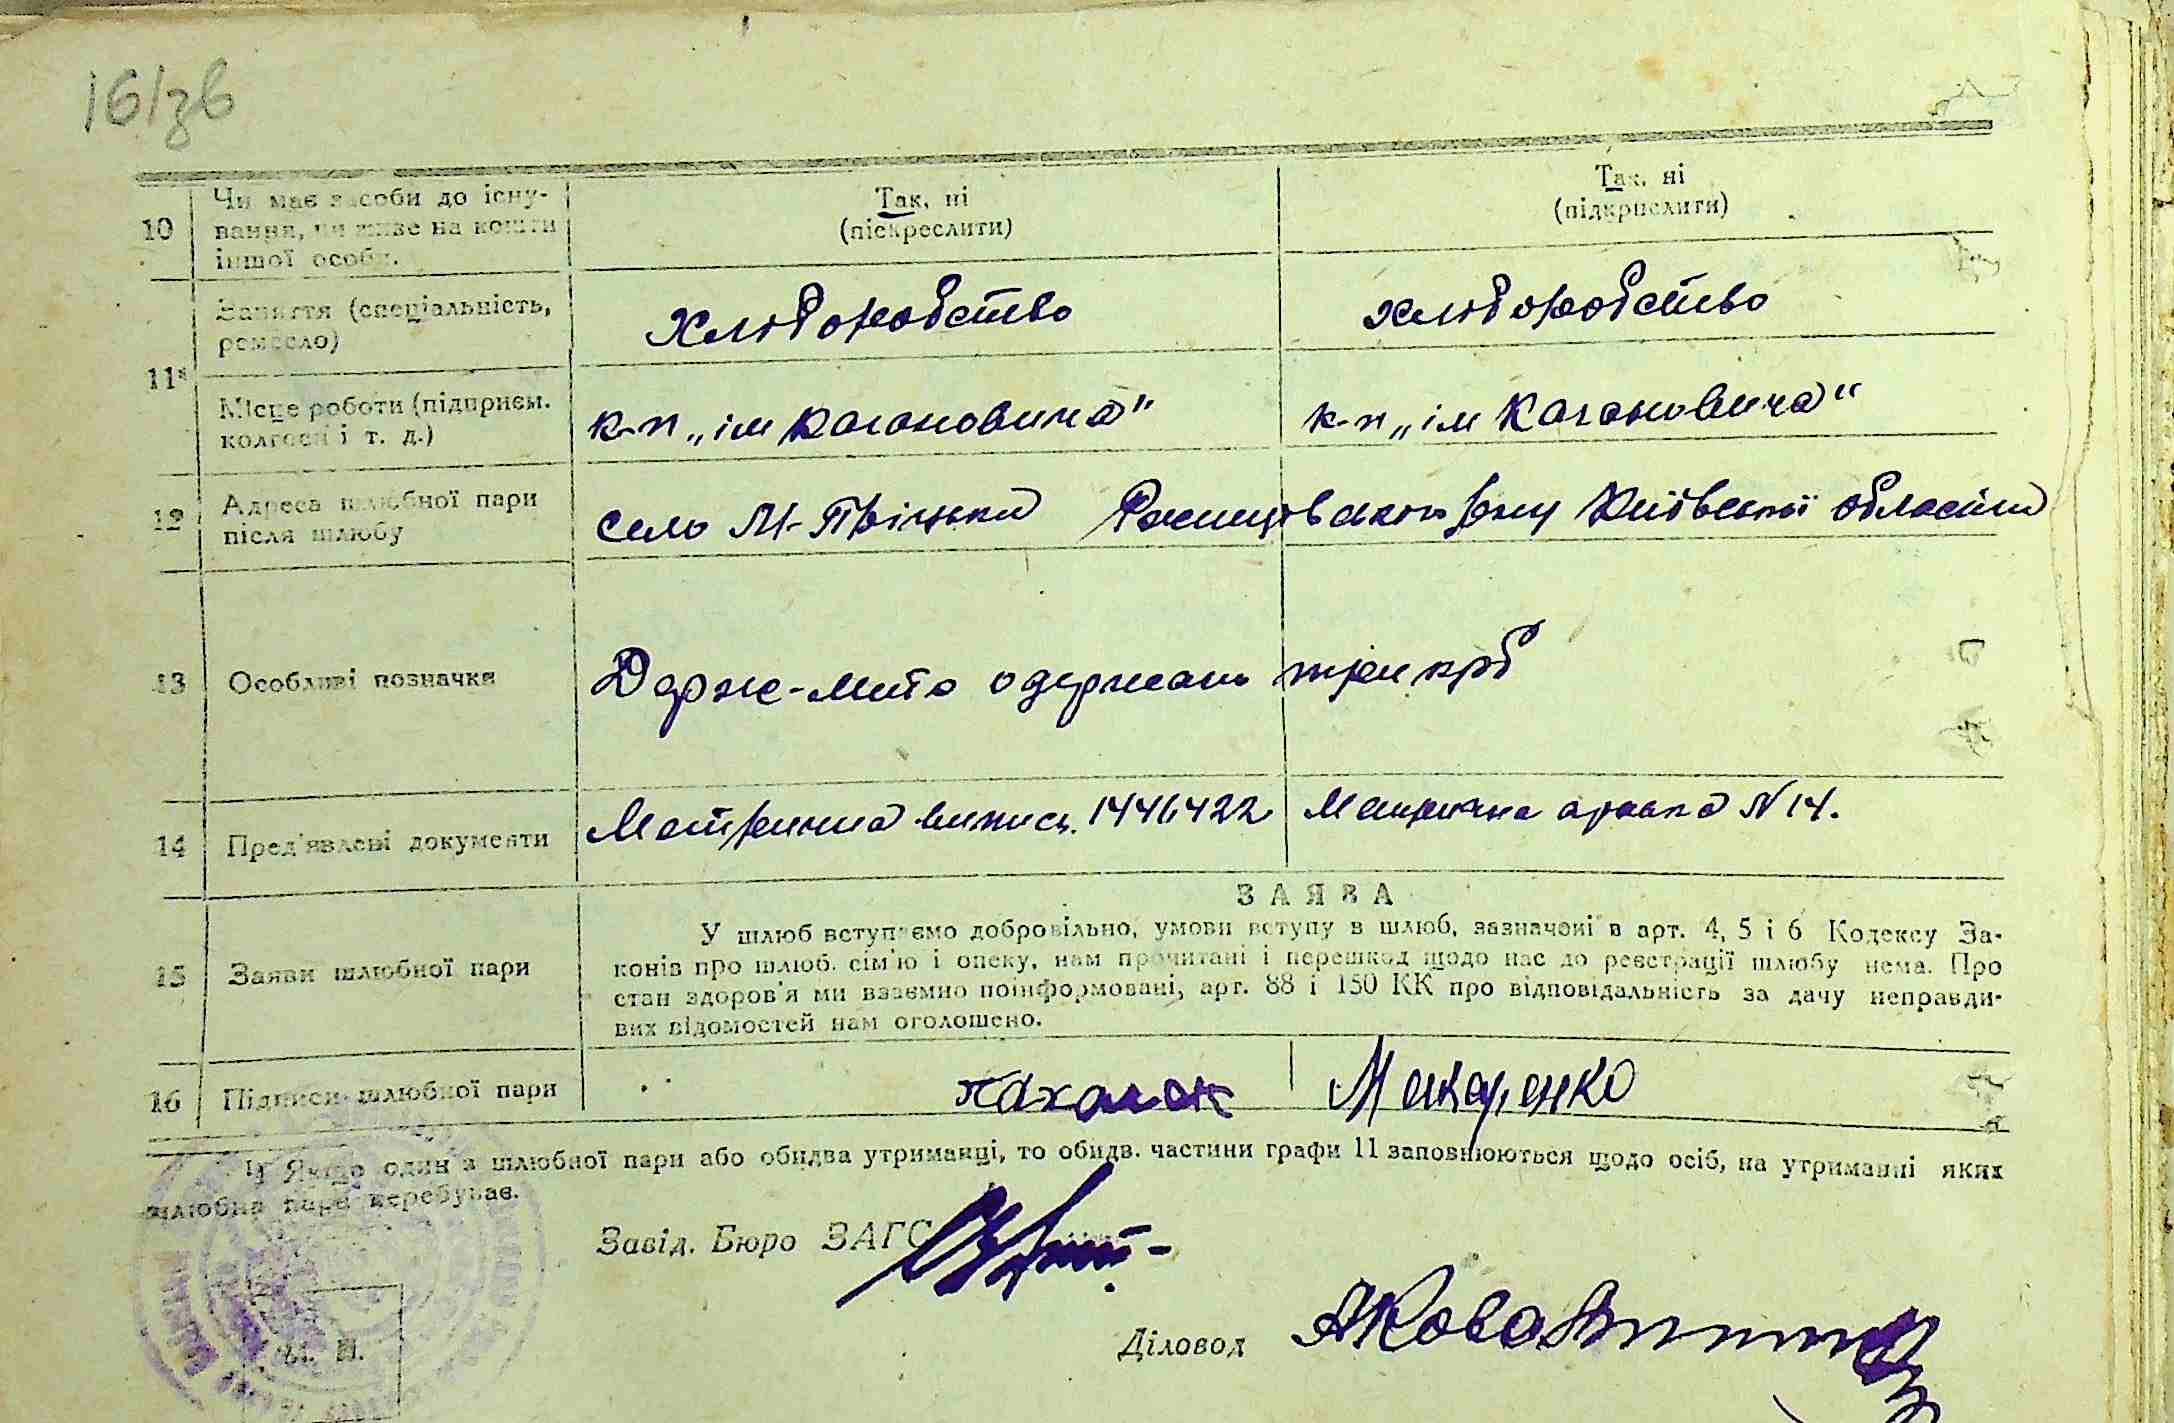 16/зв
10
Чи має засоби до існу-
вання, чи живе на кошти
іншої особи.
Так, ні
(піскреслити)
Так, ні
(підкрислити)
11
Заняття (спеціальність,
ремесло)
хліборобство
хліборобство
Місце роботи (підприєм.
колгосп і т. д.)
к-п „ім Кагановича"
к-п „ім Кагановича"
12
Адреса шлюбної пари
після шлюбу
село М-Прицьки Ржищівського р-ну Київської області
13
Особливі позначки
Держ-мито одержано три крб
14
Пред'явлені документи
Метрична випись. 1446422
Метрична
N 14.
15
Заяви шлюбної пари
ЗАЯВА
У шлюб вступаємо добровільно, умови вступу в шлюб, зазначені в арт. 4, 5 і 6 Кодексу За-
конів про шлюб. сім'ю і опеку, нам прочитані і перешкод щодо нас до реєстрації шлюбу нема. Про
стан здоров'я ми взаємно поінформовані, арт. 88 і 150 КК про відповідальність за дачу неправди-
вих відомостей нам оголошено.
16
Підписи шлюбної пари
Пахалок
Макаренко
1) Якщо один з шлюбної пари або обидва утриманці, то обидв. частини графи 11 заповнюються щодо осіб, на утриманні яких
шлюбна пара перебуває.
Завід. Бюро ЗАГС
Діловод
М. П.